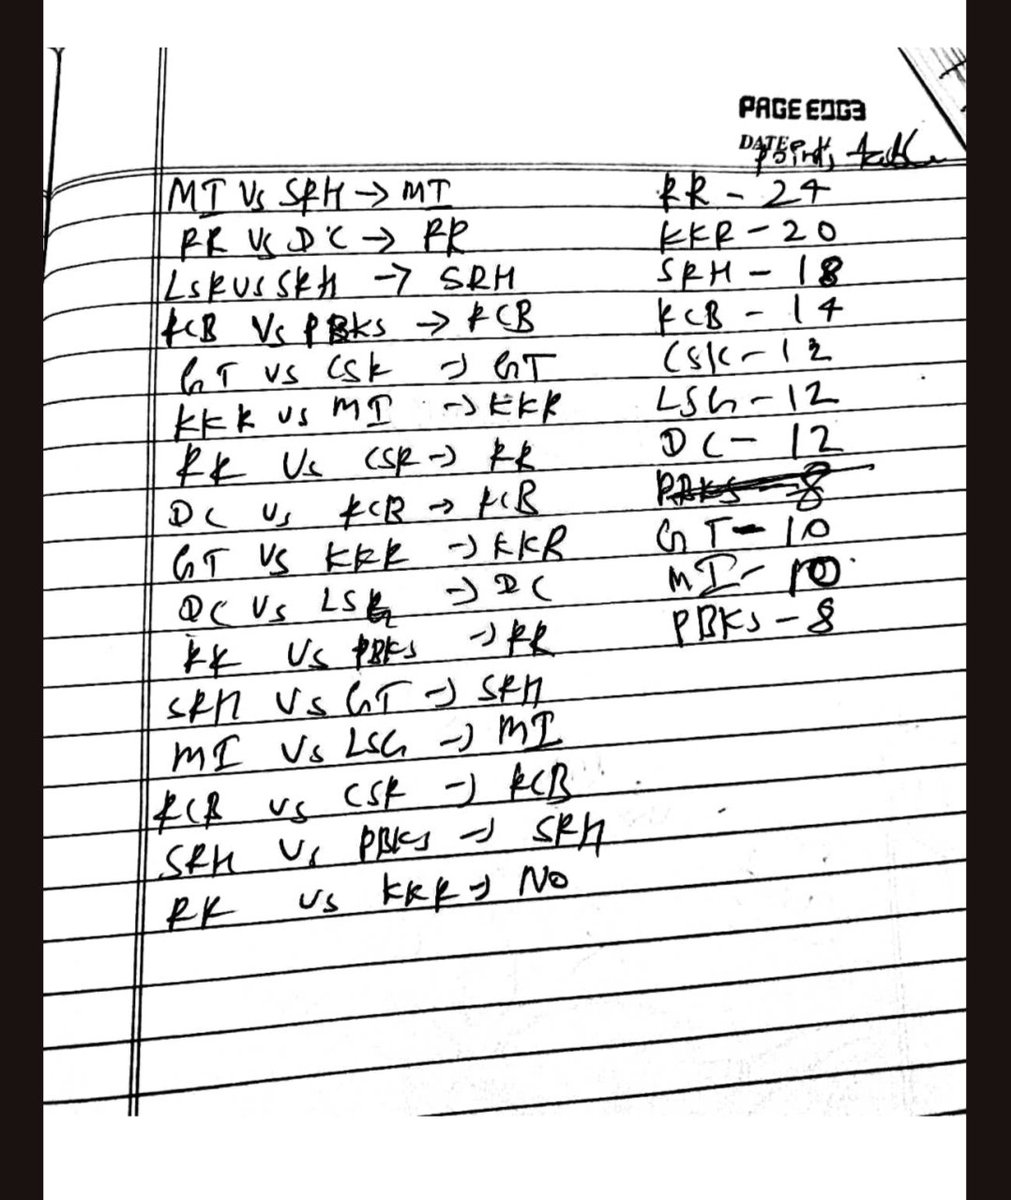 PAGE EDGE
DATE
Points table
MI Vs SRH → MI
RR Vs DC → RR
LSR vs SRH → SRH
RCB Vs PBKS → RCB
GT vs CSK → GT
KKR vs MI → KKR
RR Vs CSK → RR
DC vs RCB → RCB
GT vs KKR → KKR
DC vs LSG → DC
RR Vs PBKS → RR
SRH Vs GT → SRH
MI Vs LSG → MI
RCB vs CSK → RCB
SRH Vs PBKS → SRH
RR vs KKR → NO
RR - 24
KKR - 20
SRH - 18
RCB - 14
CSK - 12
LSG - 12
DC - 12
PBKS - 8
GT - 10
MI - 10
PBKS - 8